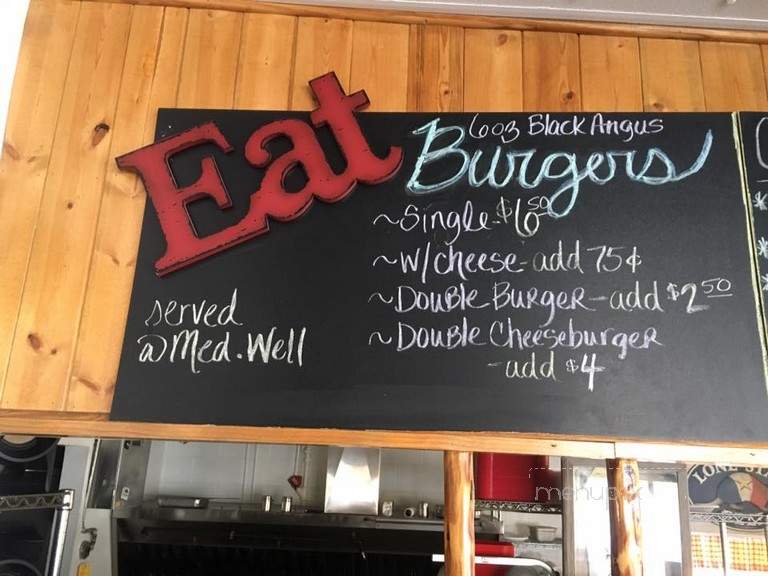 Eat
6oz Black Angus
Burgers
~Single-$6.50
~w/cheese-add 75¢
~Double Burger-add $2.50
~Double Cheeseburger
-add $4
served
@Med.Well
LONE STA